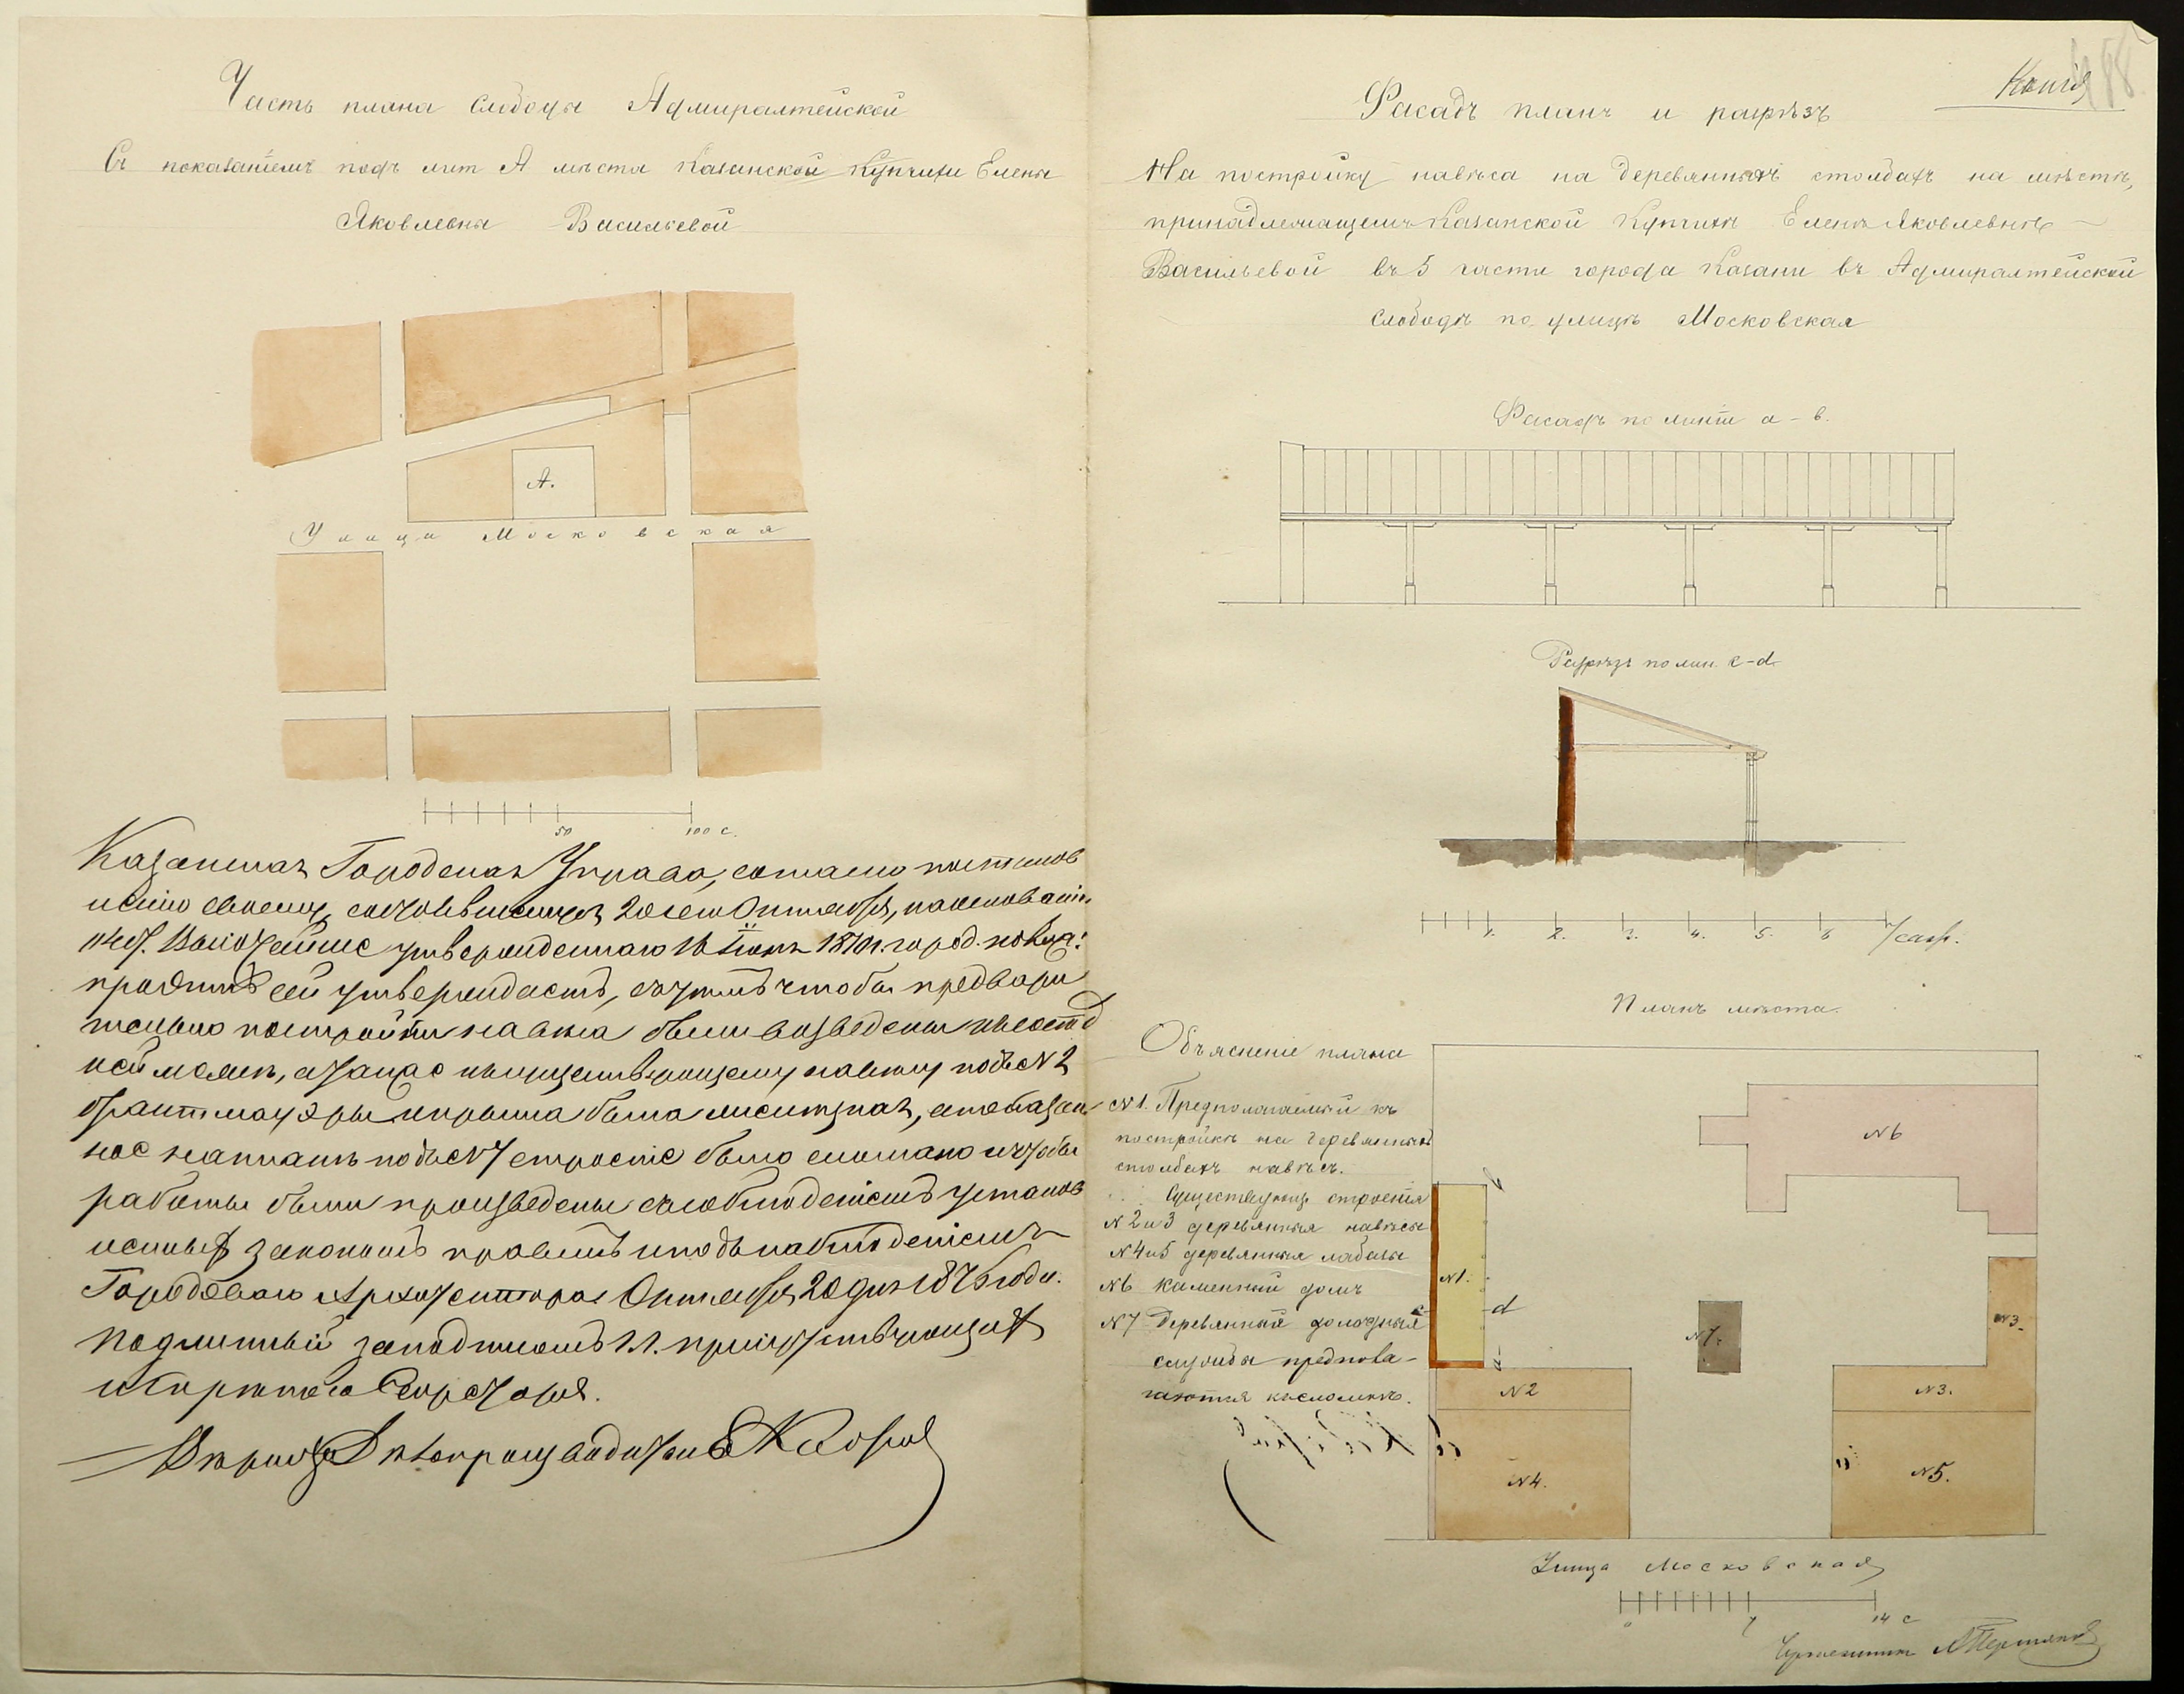 Часть плана слободы Адмиралтейской
Съ показанiемъ подъ лит А мѣста Казанской Купчихи Елены
Яковлевны Васильевой
А.
Улица Московская
50 100 с.
Казанская Городская Управа, согласно постанов
ленiю своему, состоявшемуся 20 сего Октября, на основанiи
Высочайше утвержденнаго 16 Iюня 1870 г. город. полож:
проэктъ сей утверждаетъ, съ тѣмъ чтобы предвари
тельно постройки навѣса были возведены
а также къ существующему навѣсу подъ № 2
брантмауэры, крыша была
ное на планѣ подъ № 7 строенiе было сломано и чтобы
работы были произведены съ соблюденiемъ установ
ленныхъ закономъ правилъ и подъ наблюденiемъ
Городоваго Архитектора Октября 20 дня 187 года.
Подлинный за подписомъ г.г. присутствующихъ
и скрѣпою Секретаря.
Вѣрно:
Копiя
Фасадъ планъ и разрѣзъ
На постройку навѣса на деревянныхъ столбахъ на мѣстѣ,
принадлежащемъ Казанской Купчихѣ Еленѣ Яковлевнѣ
Васильевой въ 5 части города Казани въ Адмиралтейской
слободѣ по улицѣ Московская
Фасадъ по линiи а – в.
Разрѣзъ по лин. с – d.
1. 2. 3. 4. 5. 6 7 саж.
Планъ мѣста.
Объясненiе плана
№ 1. Предполагаемый къ
постройкѣ на деревянныхъ
столбахъ навѣсъ.
Существующ. строенiя
№ 2 и 3 деревянныя навѣсы
№ 4 и 5 деревянныя лабазы
№ 6 каменный домъ
№ 7 Деревянныя холодныя
службы предпола-
гаются къ сломкѣ.
№ 6
№ 1.
d
№ 7.
№ 3.
№ 2
№ 3.
№ 4.
№ 5.
Улица Московская
0 7 14 с